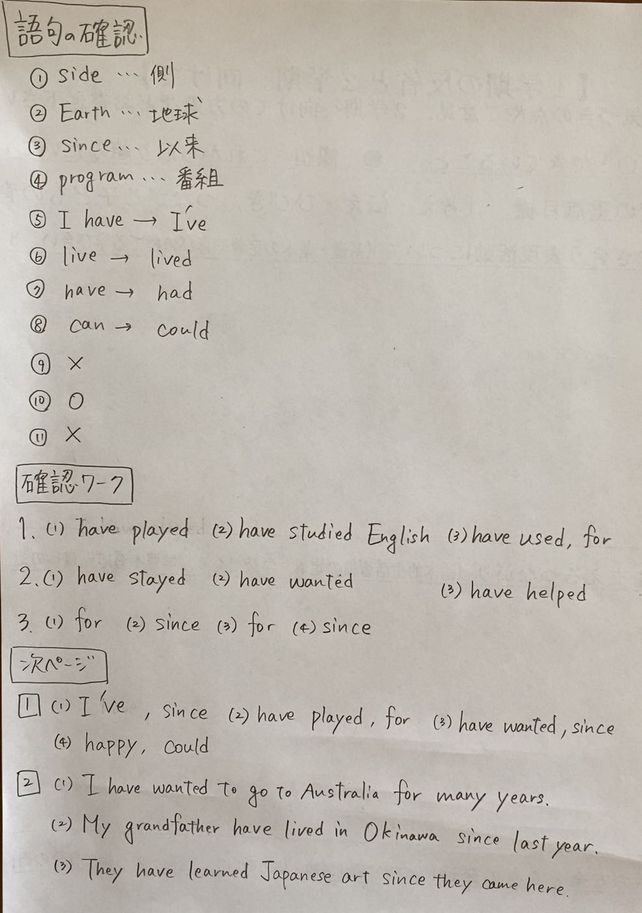 語句の確認
① side … 側
② Earth … 地球
③ since … 以来
④ program … 番組
⑤ I have → I've
⑥ live → lived
⑦ have → had
⑧ can → could
⑨ ×
⑩ ○
⑪ ×
確認ワーク
1. (1) have played (2) have studied English (3) have used, for
2. (1) have stayed (2) have wanted (3) have helped
3. (1) for (2) since (3) for (4) since
次ページ
1 (1) I've , since (2) have played, for (3) have wanted, since
(4) happy, could
2 (1) I have wanted to go to Australia for many years.
(2) My grandfather have lived in Okinawa since last year.
(3) They have learned Japanese art since they came here.